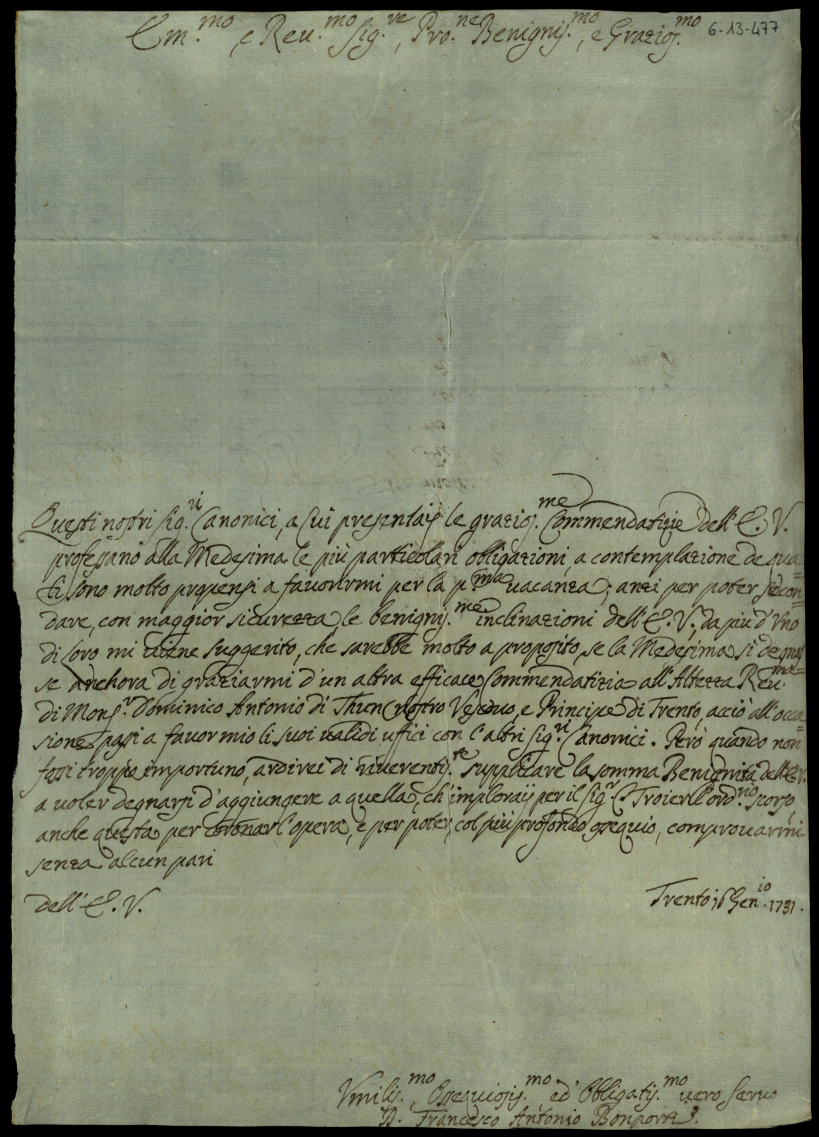 Em.mo, e Reu.mo Sig.re, Pro.ne Benignis.mo, e Grazios.mo
6-13-477
Questi nostri Sig.ri Canonici, a Cui presentaij le grazios.me Commendatizie dell'E. V.
professano alla Medesima le più particolari obligazioni, a contemplazione de qua=
li sono molto propensi a favorirmi per la p.ma vacanza; anzi per poter secon=
dare, con maggior sicurezza, le benignis.me inclinazioni dell'E. V., da più d'Uno
di Loro mi viene suggerito, che sarebbe molto a proposito, se la Medesima si degnas=
se anchora di graziarmi d'un altra efficace Commendatizia all'Altezza Reu.ma
di Mons.r Dominico Antonio di Thun nostro Vescovo, e Principe di Trento, acciò all'occa=
sione, passi a favor mio li suoi validi uffici con l'altri Sig.ri Canonici. Però quando non
fossi troppo importuno, ardirei di riverentis.te supplicare la somma Benignità dell'E. V.
a voler degnarsi d'aggiungere a quella, ch'imploraij per il Sig.r C. Troier l'ord.rio scorso,
anche questa per coronar l'opera, e per poter, col più profondo ossequio, comprovarmi
senza alcun pari
dell'E. V.
Trento 16 Gen.io 1731.
Vmilis.mo Ossequiosis.mo ed Obligatis.mo vero Servo
D. Francesco Antonio Bonporti.